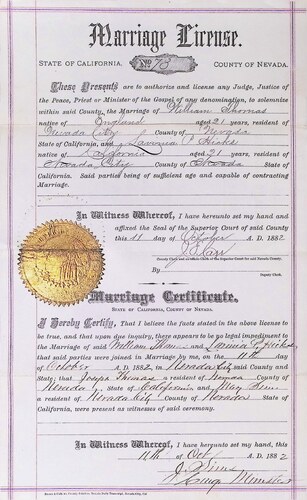 Marriage License.
STATE OF CALIFORNIA, No 73 COUNTY OF NEVADA.
These Presents are to authorize and license any Judge, Justice of
the Peace, Priest or Minister of the Gospel of any denomination, to solemnize
within said County, the Marriage of William Thomas
native of England aged 21 years, resident of
Nevada City County of Nevada
State of California, and P Hicks
native of California aged years, resident of
Nevada City County of Nevada State of
California. Said parties being of sufficient age and capable of contracting
Marriage.
In Witness Whereof, I have hereunto set my hand and
affixed the Seal of the Superior Court of said County
this 11 day of October A. D. 1882
Deputy Clerk.
Marriage Certificate.
STATE OF CALIFORNIA, COUNTY OF NEVADA.
I Hereby Certify, That I believe the facts stated in the above license to
be true, and that upon due inquiry, there appears to be no legal impediment to
the Marriage of said William and Hicks
that said parties were joined in Marriage by me, on the 11th day of
October A. D. 1882, in Nevada City said County and
State; that Joseph Thomas a resident of Nevada County of
Nevada State of California and Mary
a resident of Nevada City County of Nevada State of
California, were present as witnesses of said ceremony.
In Witness Whereof, I have hereunto set my hand this
11th of Oct A. D. 1882